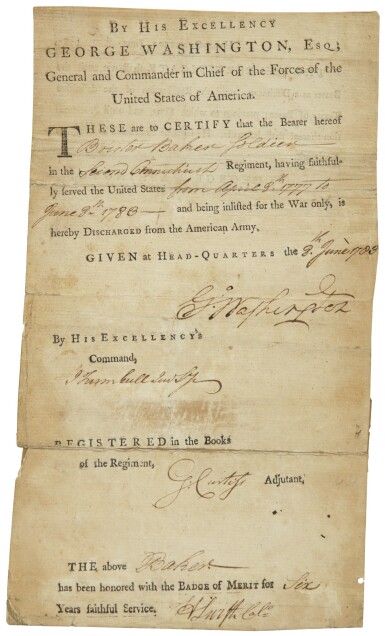 By His Excellency
GEORGE WASHINGTON, Esq;
General and Commander in Chief of the Forces of the
United States of America.
THESE are to CERTIFY that the Bearer hereof
Baker Soldier
in the Second Connecticut Regiment, having faithful-
ly served the United States from April 8th 1777 to
June 8th 1783 — and being inlisted for the War only, is
hereby DISCHARGED from the American Army.
GIVEN at HEAD-QUARTERS the 8th June 1783
G:Washington
By HIS EXCELLENCY'S
Command,
J Trumbull Jun Sy
REGISTERED in the Books
of the Regiment,
G. Curtiss Adjutant,
THE above Baker
has been honored with the BADGE of MERIT for Six
Years faithful Service. H Swift Colo